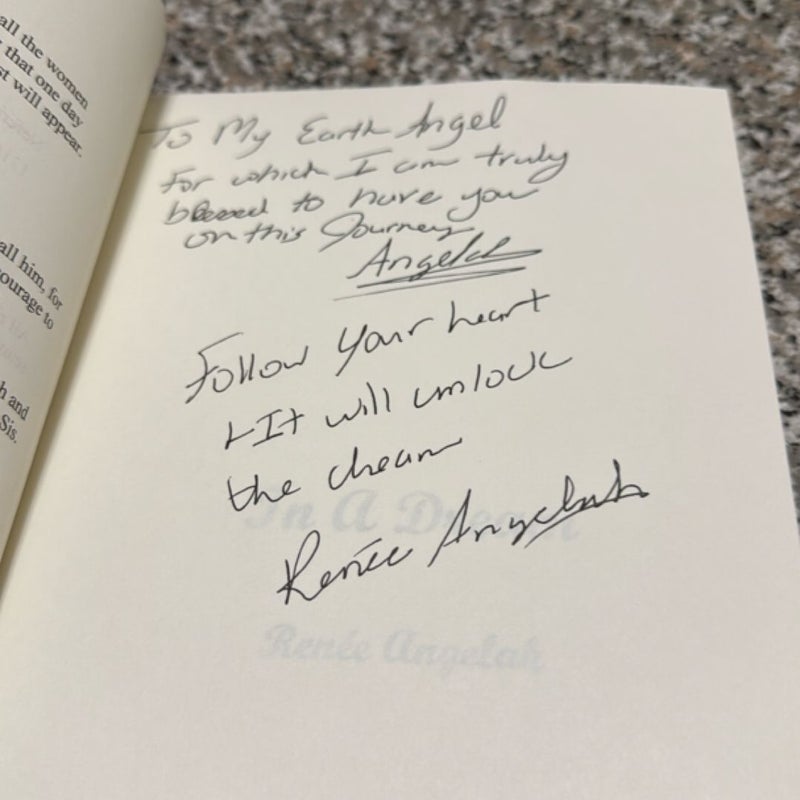 all the women
that one day
st will appear.
all him, for
ourage to
h and
Sis.
To My Earth Angel
For which I am truly
blessed to have you
on this Journey
Angelah
Follow Your heart
& It will unlock
the dream
Renée Angelah
In A Dream
Renée Angelah